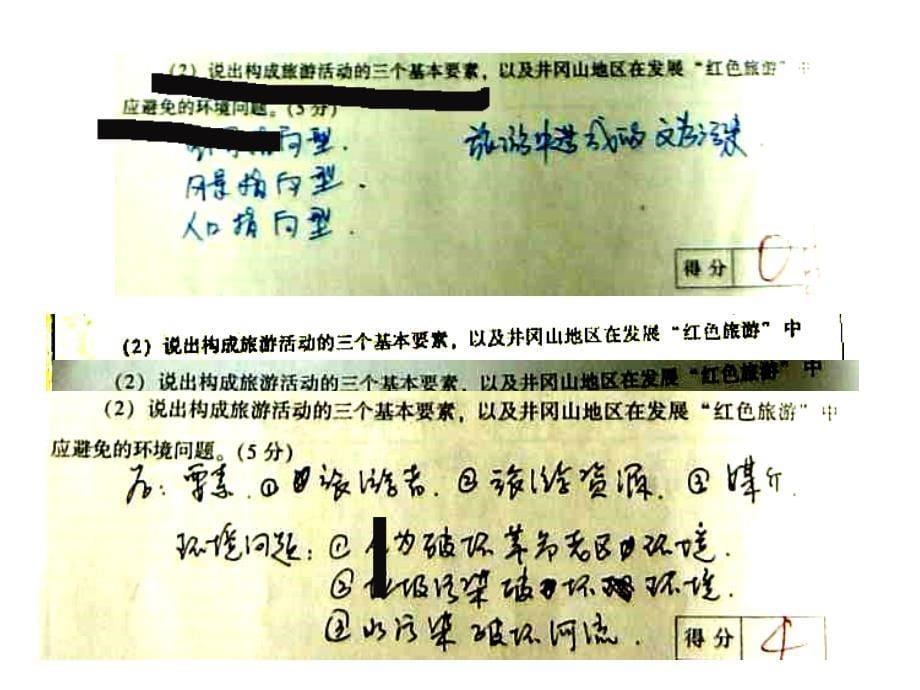 (2) 说出构成旅游活动的三个基本要素，以及井冈山地区在发展“红色旅游”中
应避免的环境问题。(5分)
向型.
旅游中造成的文为污染.
风景指向型.
人口指向型.
得分 0
(2) 说出构成旅游活动的三个基本要素，以及井冈山地区在发展“红色旅游”中
(2) 说出构成旅游活动的三个基本要素，以及井冈山地区在发展“红色旅游”中
(2) 说出构成旅游活动的三个基本要素，以及井冈山地区在发展“红色旅游”中
应避免的环境问题。(5分)
要素. ① 旅游者. ② 旅游资源. ③ 媒介.
环境问题: ① 人为破坏革命老区环境.
② 垃圾污染破坏环境.
③ 水污染破坏河流.
得分 4